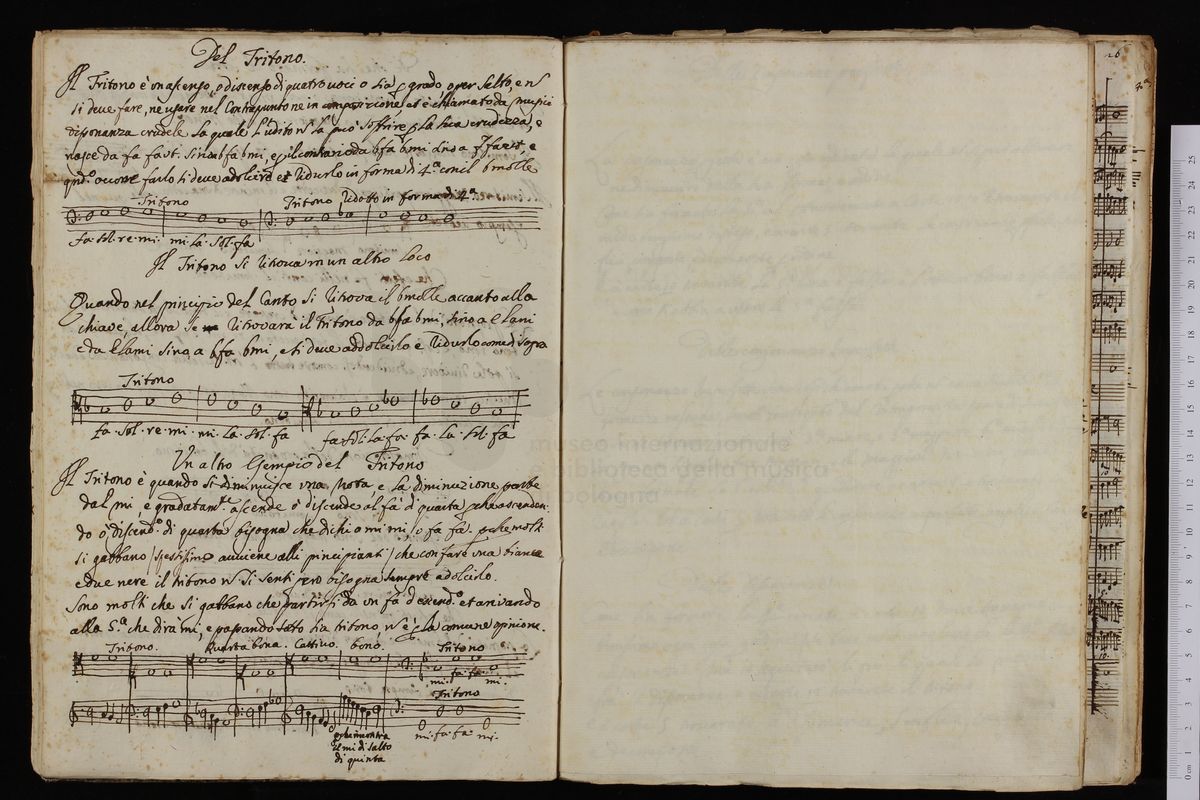 Del Tritono.
Il Tritono è un ascenso, o discenso di quattro voci o sia p grado o per salto, e nõ
si deve fare, ne usare nel Contrapunto ne in composizione et è chiamato da musici
dissonanza crudele la quale l'udito nõ la può soffrire p la sua crudezza, e
nasce da fa faut. sino a bfa bmi, e il contrario da bfa bmi sino a ffaut, e
qndo occorre farlo si deve adolcire et ridurlo in forma di 4.a con il bmolle
Tritono Tritono Ridotto in forma di 4.a
fa. sol. re. mi. mi. la. sol. fa
Il Tritono si ritrova in un altro loco
Quando nel principio del Canto si ritrova il bmolle accanto alla
chiave allora se ritrovarà il Tritono da bfa bmi, sino a Elami
e da Elami sino a bfa bmi, e si deve addolcirlo e ridurlo come di sopra
Tritono
fa. sol. re. mi. mi. la. sol. fa fa. sol. la. fa. fa. la. sol. fa
Un altro Esempio del Tritono
Il Tritono è quando si diminuisce una Nota, e la diminuzione parte
dal mi, e gradatamte ascende o discende al fà di quarta, pche ascenden
do o discendo di quarta bisogna che dichi o mi mi, o fa fa. pche molti
si gabbano spessissimo avviene alli principianti che con fare una bianca
e due nere il tritono nõ si senti però bisogna sempre adolcirlo.
Sono molti che si gabbano che partirsi da un fà descendo et arivando
alla 5.a che dirà mi, e passando sotto sia tritono, nõ è p la comune opinione.
Tritono. Quarta bona. Cattivo. bono. Tritono
mi. fa. fa. mi.
Tritono
mi. fa. fa. mi.
pche incontra
il mi di salto
di quinta
museo internazionale
e biblioteca della musica
di bologna
26